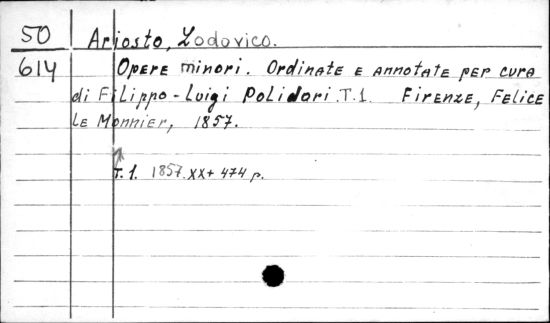 50 Ariosto, Lodovico.
614 Opere minori. Ordinate e annotate per cura
di Filippo-Luigi Polidori. T.1. Firenze, Felice
Le Monnier, 1857.
T. 1. 1857. XX+ 474 p.